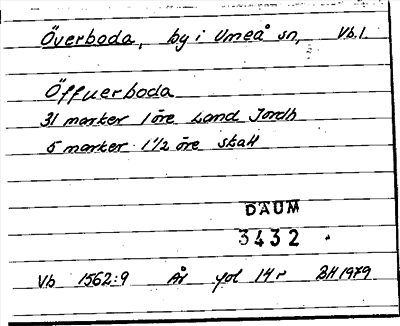 Överboda, by i Umeå sn, Vb.l.
Öffuerboda
31 marker 1 öre Land Jordh
5 marker 1 1/2 öre skatt
DAUM
3432
Vb 1562:9 År fol 14 r BH 1979